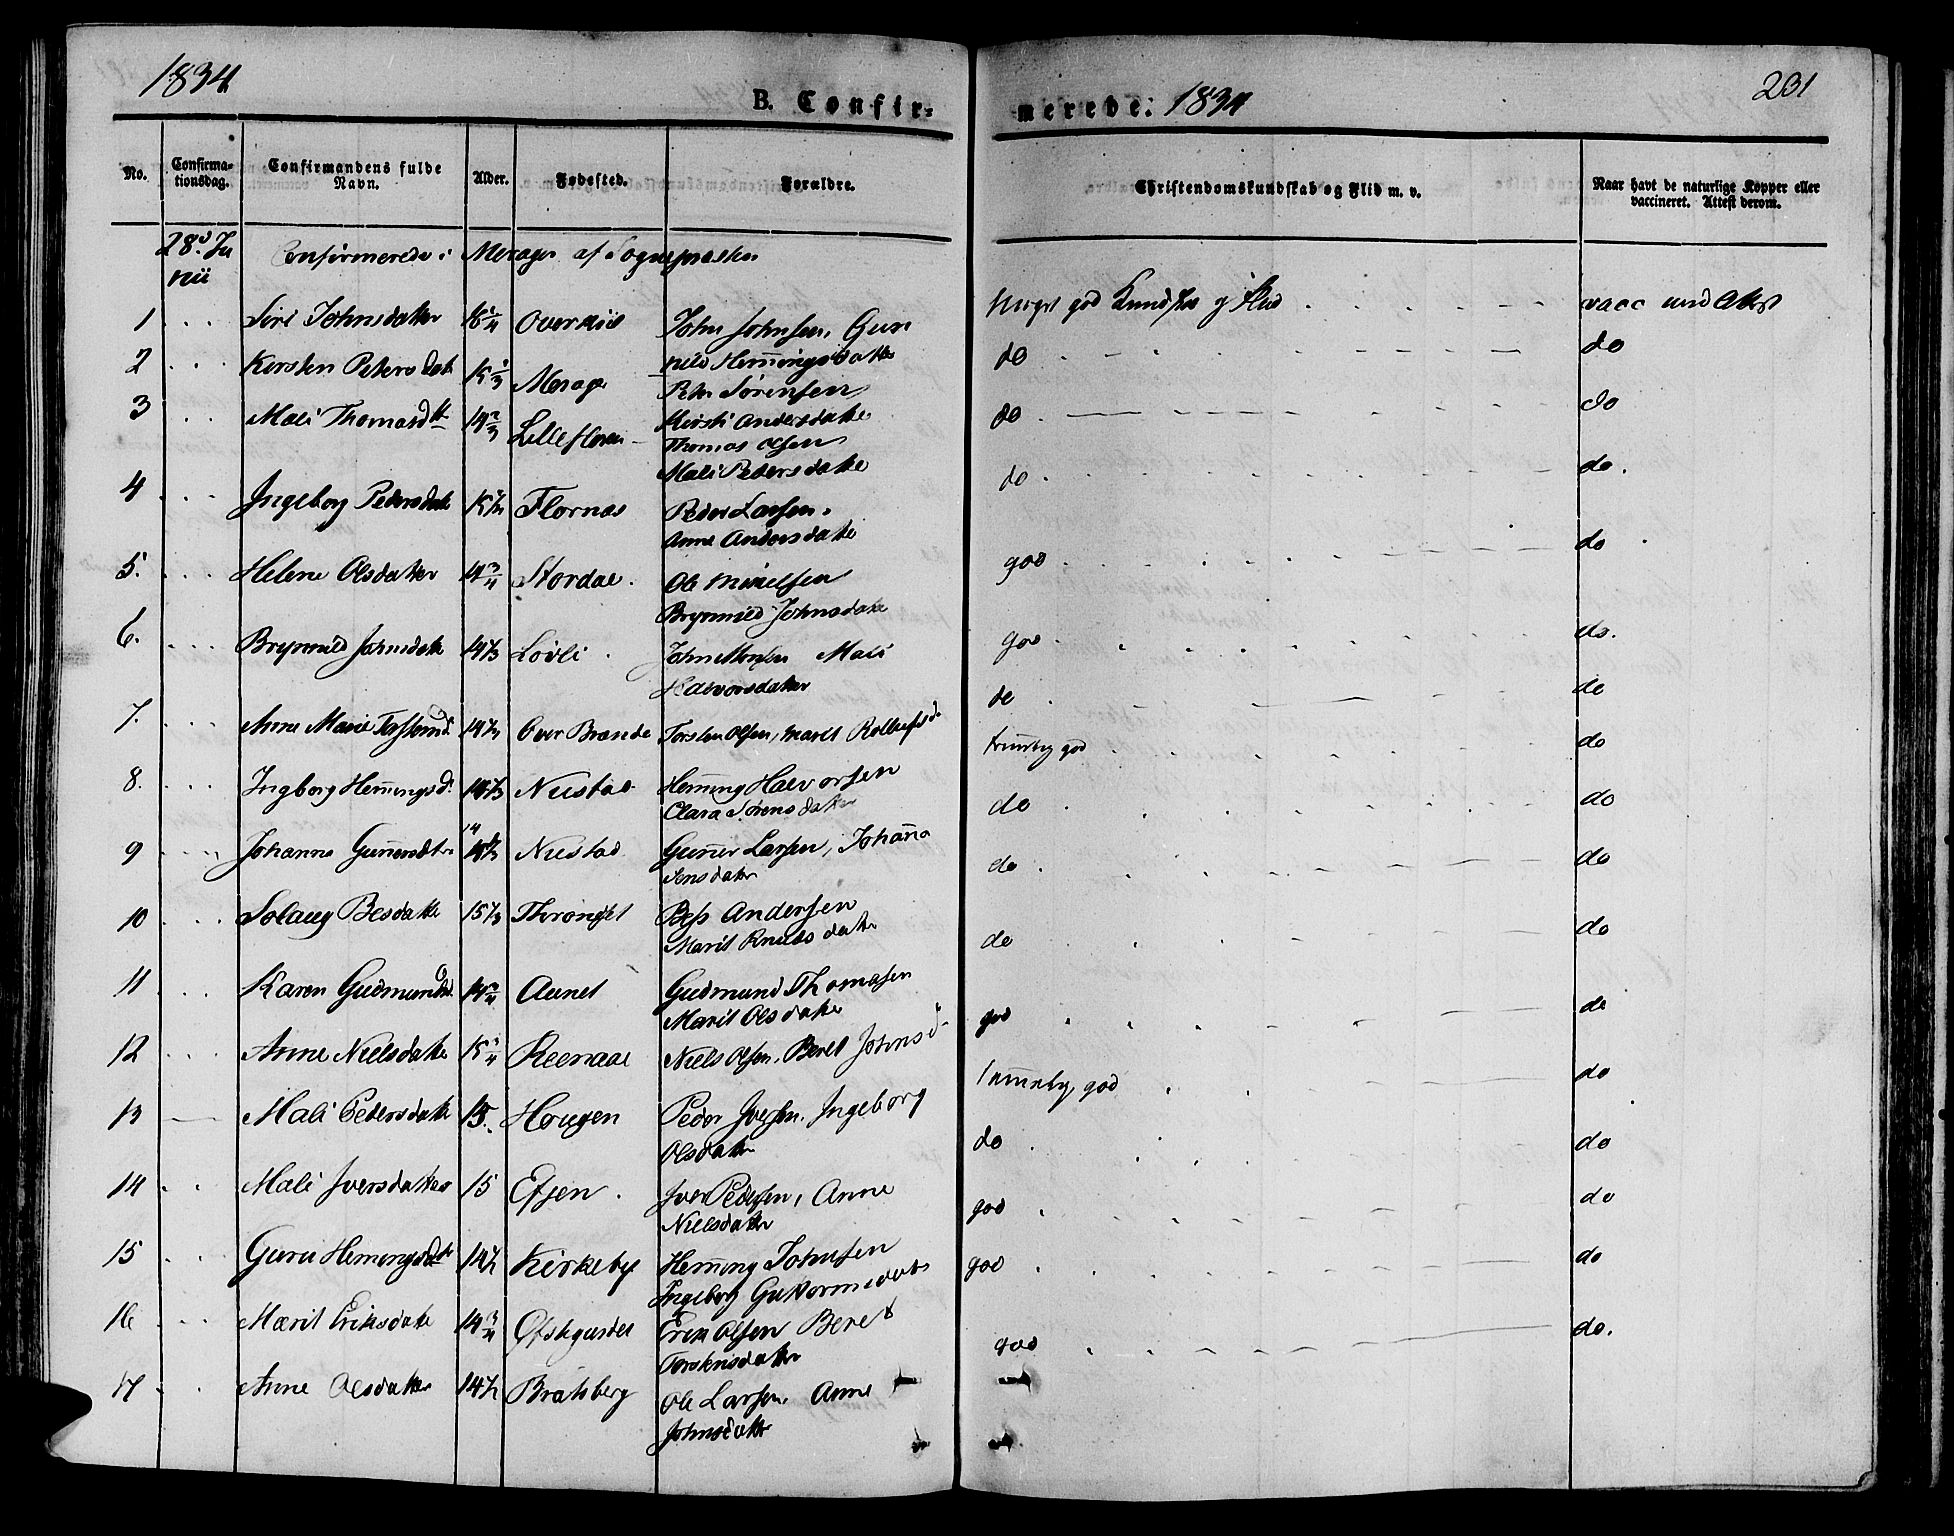 1834
B. Confir-
merede. 1834
231
No. Confirma-tionsdag. Confirmandens fulde Navn. Alder. Fødested. Forældre. Christendomskundskab og Flid m. v. Naar havt de naturlige Kopper eller vaccineret. Attest derom.
28d Ju
nii Confirmerede i Merager af Sognepræsten
1 Siri Johnsdatter John Johnsen, Gun
nild Hemingsdatter
Meget god Kundskab og Flid vacc med Attest
2 Kersten Petersdat Merager Peter Sørensen
Kirsti Andersdatter
do do
3 Mali Thomasdtr 14 2/3 Lillefloren Thomas Olsen
Mali Pedersdatter
do do
4 Ingeborg Pedersdatter 15 1/2 Flornæs Peder Larsen.
Anne Andersdatter
do do.
5. Helene Olsdatter 14 3/4 Stordal. Ole Mikelsen
Brynnild Johnsdatter
god do
6. Brynnild Johnsdatter 14 1/3 Løvli John Mali
Halvorsdatter
god do.
7. Anne Marie 14 1/2 Over Brænde Torsten Olsen, Marit
do do
god do
8. Ingborg Hemingsd. Nustad Heming Halvorsen
Clara Sørensdatter
do do
9 Johanna Gunersdtr Nustad Guner Larsen, Johanna
Jensdatter
do do
10 Solaug Besdatter 15 1/3 Thronget Bess Andersen
Marit Knutsdatter
do do
11 Karen Gudmundsd Aunet Gudmund Thomasen
Marit Olsdatter
god do
12 Anne Nielsdatter 15 1/4 Niels Olsen, Beret Johnsd
god do
13 Mali Pedersdatter 15. Hougen Peder Iversen. Ingeborg
Olsdatter
do do
14 Mali Iversdatter 15 Efjen. Iver Pedersen, Anne
Nielsdatter
god do
15 Guru Hemingsdtr 14 1/2 Kirkeby Heming Johnsen
Ingeborg Guttormsdatter
god do
16 Marit Eriksdatter 14 3/4 Erik Olsen Beret
Torstensdatter
god do.
17 Anne Olsdatter 14 1/2 Bratsberg Ole Larsen, Anne
Johnsdatter